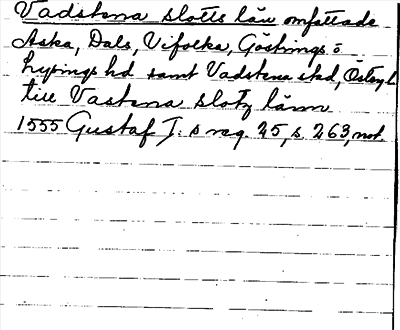 Vadstena slotts län omfattade
Aska, Dals, Vifolka, Göstrings o
Lysings hd samt Vadstena stad, Östergl.
till Vastena slotz länn
1555 Gustaf I:s reg. 25, s. 263, not.